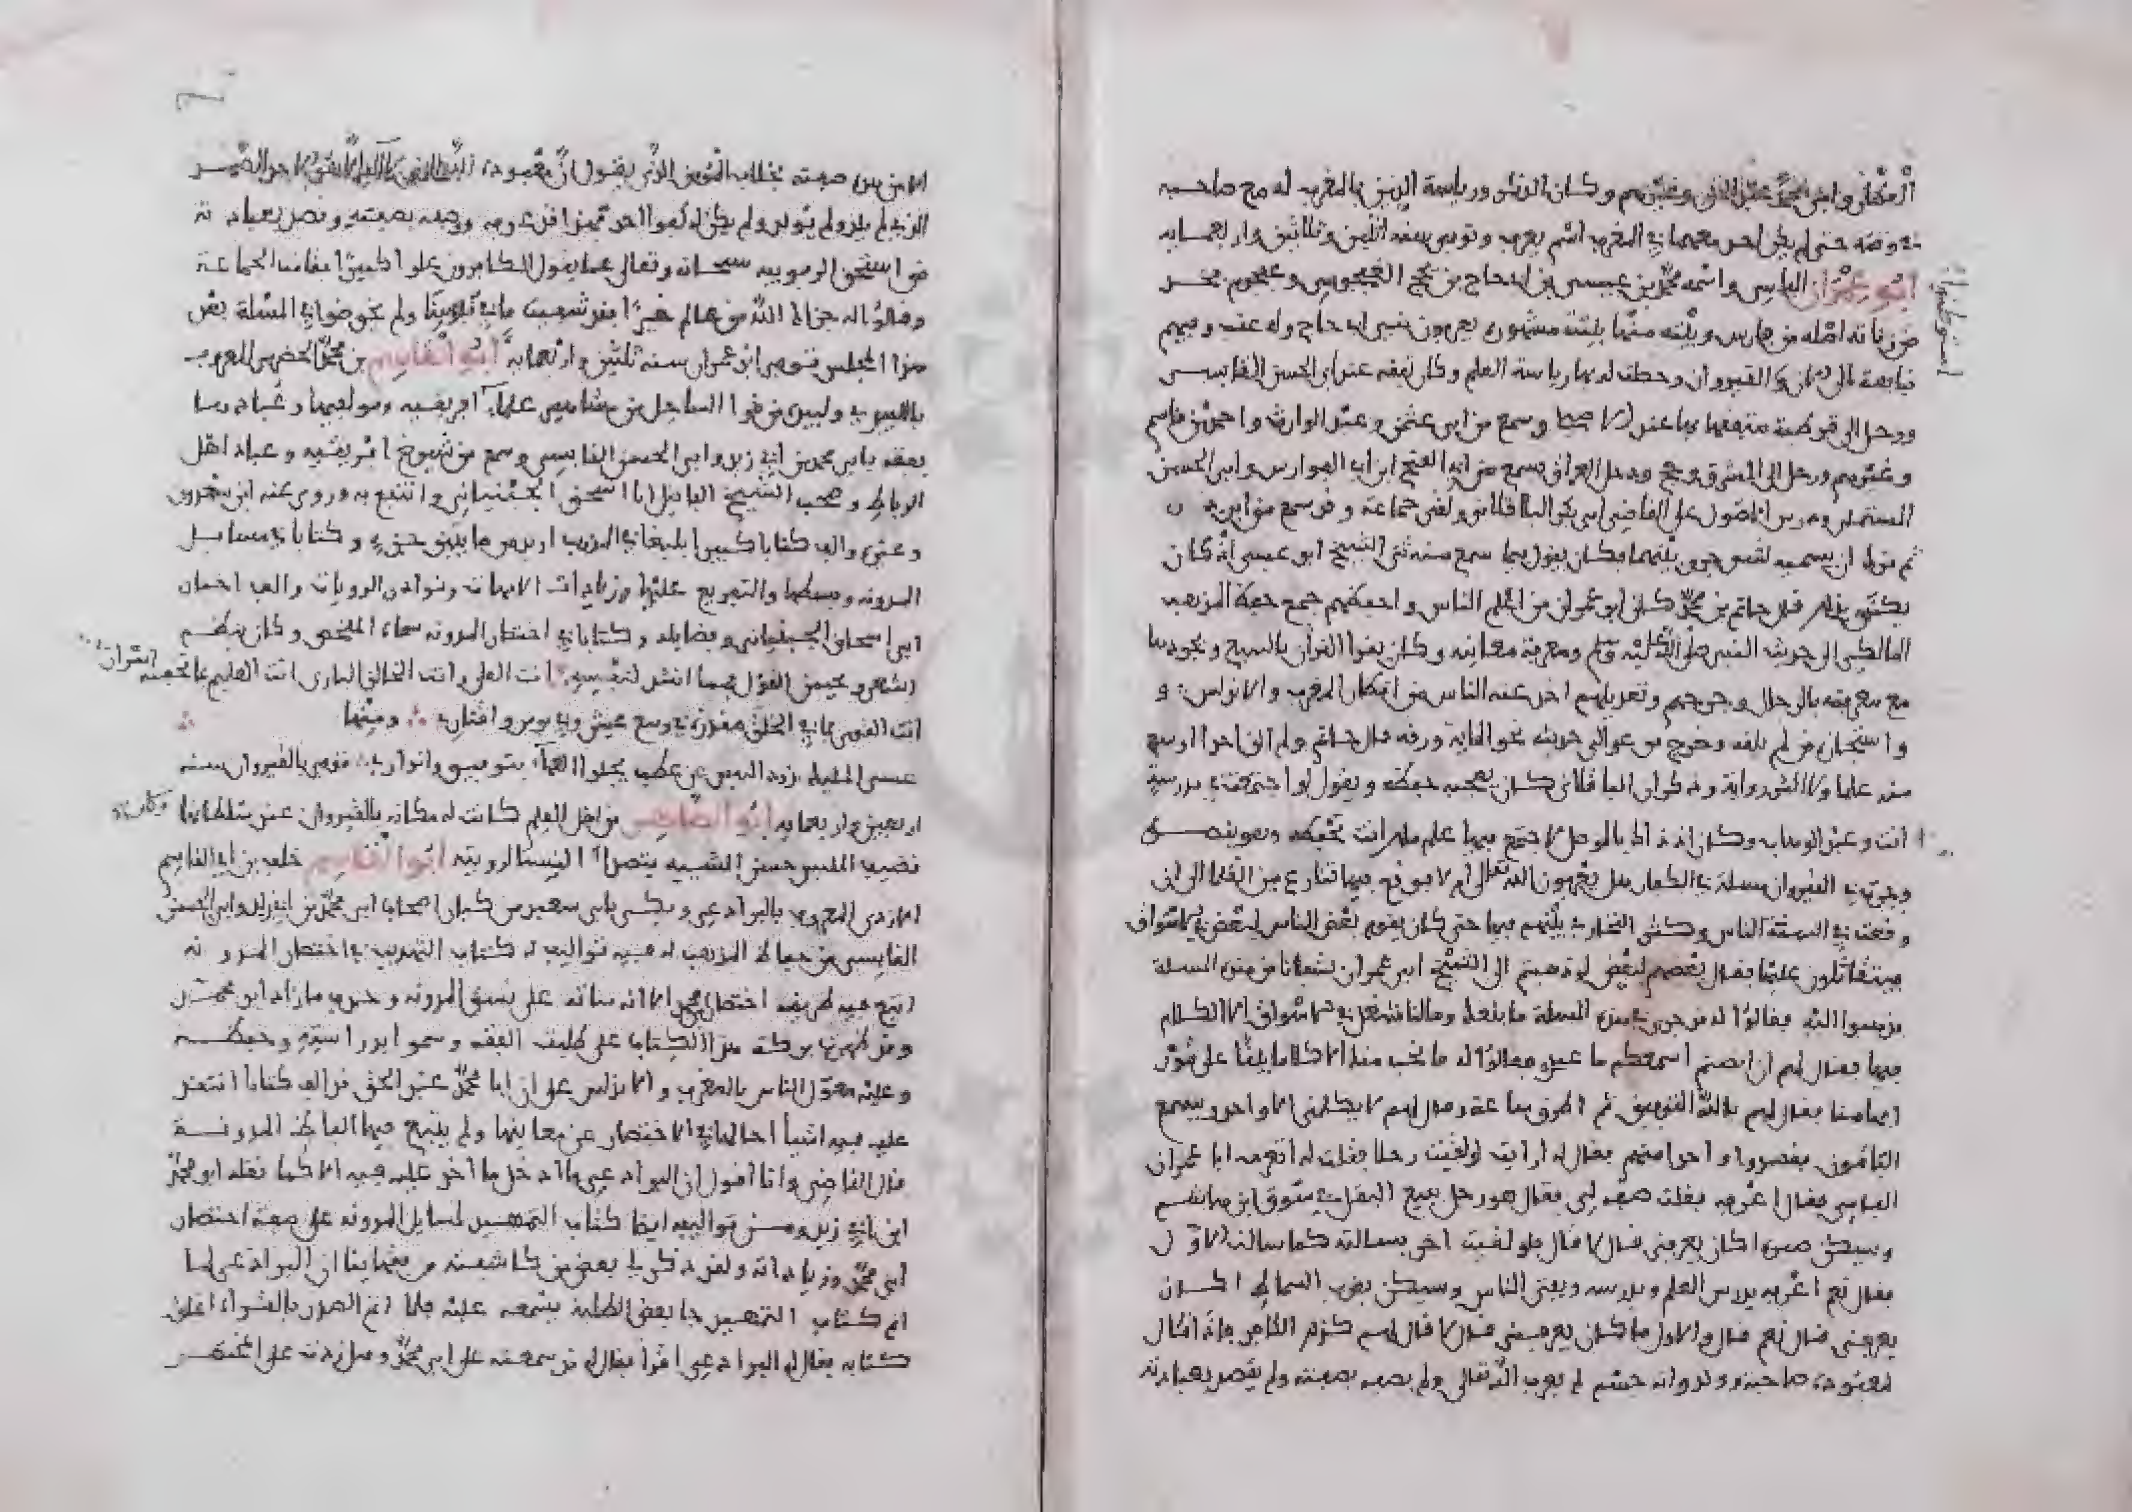 وغيرهم وكان الذكر ورياسة الدين بالمغرب له مع صاحبه
في وقته حتى لم يكن لاحد معهما في المغرب اسم يعرف وتوفي سنة اثنين وثلاثين واربعماية
ابو عمران الفاسي واسمه محمد بن عيسى بن ابي حاج بن يحج الغفجومي وغفجوم فخذ
من زناتة اصله من فاس وبيته منها بيت مشهور يعرفون ببني ابي حاج وله عقب وفيهم
نباهة الى الان القيروان وحصلت له بها رياسة العلم وكان تفقه عند ابي الحسن القابسي
ورحل الى قرطبة فتفقه بها عند الاصيلي وسمع من ابي عثمن وعبد الوارث واحمد بن قاسم
وغيرهم ورحل الى المشرق وحج ودخل العراق فسمع من ابي الفتح ابن ابي الفوارس وابي الحسن
المستملي ودرس الاصول على القاضي ابي بكر الباقلاني ولقي جماعة وقد سمع من ابي ذر
ثم ترك ان يسميه لشيء جرى بينهما فكان يقول فيما سمع منه ثنى الشيخ ابو عيسى انه كان
يكنى بذلك قال حاتم بن محمد كان ابو عمران من اعلم الناس واحفظهم جمع حفظ المذهب
المالكي الى حديث النبي صلى الله عليه وسلم ومعرفة معانيه وكان يقرا القران بالسبع ويجودها
مع معرفته بالرجال وجرحهم وتعديلهم اخذ عنه الناس من اقطار المغرب والاندلس و
واستجاز من لم يلقه وخرج من عوالي حديثه نحو الماية ورقة قال حاتم ولم الق احدا اوسع
منه علما ولا اكثر رواية وذكر ان الباقلاني كان يعجبه حفظه ويقول لو اجتمعت في مدرستي
انت وعبد الوهاب وكان اذ ذاك بالموصل لاجتمع فيها علم ملك انت تحفظه وهو ينصره
وجرت في القيروان مسلة في الكفار هل يعرفون الله تعالى ام لا فوقع فيها تنازع من العلما الى ان
وقعت في السنة الناس وكثر التجارب بينهم فيها حتى كان يقوم بعض الناس لبعض في الاسواق
فيتقاتلون عليها فقال بعضهم لبعض لو ذهبتم الى الشيخ ابي عمران لشفانا من هذه المسلة
فذهبوا اليه فقالوا له قد جرى في هذه المسلة ما بلغك ومالنا شغل في الاسواق الا الكلام
فيها فقال لهم ان انصتم اسمعكم ما عندي فقالوا له ما نحب منك الا كلاما بينا على قدر
افهامنا فقال لهم بالله التوفيق ثم اطرق ساعة وقال لهم لا يكلمني الا واحد ويسمع
الباقون فقصدوا واحدا منهم فقال له ارايت لو لقيت رجلا فقلت له اتعرف ابا عمران
الفاسي فقال اعرفه فقلت صفه لي فقال هو رجل يبيع البقل في سوق ابن هاشم
ويسكن صبرة اكان يعرفني قال لا قال فلو لقيت اخر فسالته كما سالت الاول
فقال نعم اعرفه يدرس العلم ويدرسه ويفتي الناس ويسكن بغرب السماط اكان
يعرفني قال نعم قال والاول ما كان يعرفني قال لا قال لهم كذلك الكافر فاذا قال
لمعبوده صاحبة وولد وانه جسم لم يعرف الله تعالى ولم يصفه بصفته ولم يقصد بعبادته
الا من هذه صفته بخلاف المؤمن الذي يقول ان معبوده الله الاحد الصمد
الذي لم يلد ولم يولد ولم يكن له كفوا احد فهذا قد عرفه ووصفه بصفته وقصد بعبادته
من استحق الربوبية سبحانه وتعالى عما يقول الكافرون علوا كبيرا فقامت الجماعة
وقالوا له جزاك الله من عالم خيرا فقد شفيت ما في قلوبنا ولم يخوضوا في المسلة بعد
هذا المجلس توفي ابو عمران سنة ثلثين واربعماية ابو القاسم بن محمد الحضرمي المعروف
باللبيدي ولبيد من قرى الساحل من مشاهير علماء افريقية ومولفيها وعبادها
تفقه بابي محمد بن ابي زيد وابي الحسن القابسي وسمع من شيوخ افريقية وعباد اهل
الرباط وصحب الشيخ الفاضل ابا اسحق الجبنياني وانتفع به وروى عنه ابن سعدون
وغيره والف كتابا كبيرا بليغا في المذهب ازيد من مايتي جزء وكتابا في مسايل
المدونة وبسطها والتفريع عليها وزيادات الامهات ونوادر الروايات والف اخبار
ابي اسحاق الجبنياني وفضايله وكتابا في اختصار المدونة سماه الملخص وكان ينظم
الشعر ويجيد القول فمما انشد لنفسه انت العلي وانت الخالق الباري انت العليم بما تخفيه اسراري
انت الغني بما في الخلق مقدرة في وسع عيش وفي بوس واقتار ومنها
عسى المليك يزود العبد عن عطب يجلو العمى بتوفيق وانوار توفي بالقيروان سنة
اربعين واربعماية ابو الطاهر من اهل العلم كانت له مكانة بالقيروان عند سلطانها وكان
نظيف الملبس حسن الشيبة ابو القاسم خلف بن ابي القاسم
الازدي المعروف بالبراذعي ويكنى بابي سعيد من كبار اصحاب ابي محمد بن ابي زيد وابي الحسن
القابسي من حفاظ المذهب له فيه تواليف له كتاب التهذيب في اختصار المدونة
اتبع فيه طريقة اختصار ابي محمد الا انه ساقه على نسق المدونة وحذف ما زاد ابو محمد
وقد ظهرت بركة هذا الكتاب على طلبة الفقه وسموا بدراسته وحفظه
وعليه معول الناس بالمغرب والاندلس على ان ابا محمد عبد الحق قد الف كتابا انتقد
عليه فيه اشيا احالها في الاختصار عن معانيها ولم يتبع فيها الفاظ المدونة
قال القاضي وانا اقول ان البراذعي ما ادخل ما اخذ عليه فيه الا كما نقله ابو محمد
ابن ابي زيد ومن تواليفه ايضا كتاب التمهيد لمسايل المدونة على صفة اختصار
ابي محمد وزياداته ولقد ذكر لي بعض من كاشفته من فقهاينا ان البراذعي لما
اتم كتاب التمهيد جا بعض الطلبة يسمعه عليه فلما اتم الصدر بالقراة اغلق
كتابه فقال له البراذعي اقرا فقال له قد سمعته على ابي محمد وهل زدت على المختصر